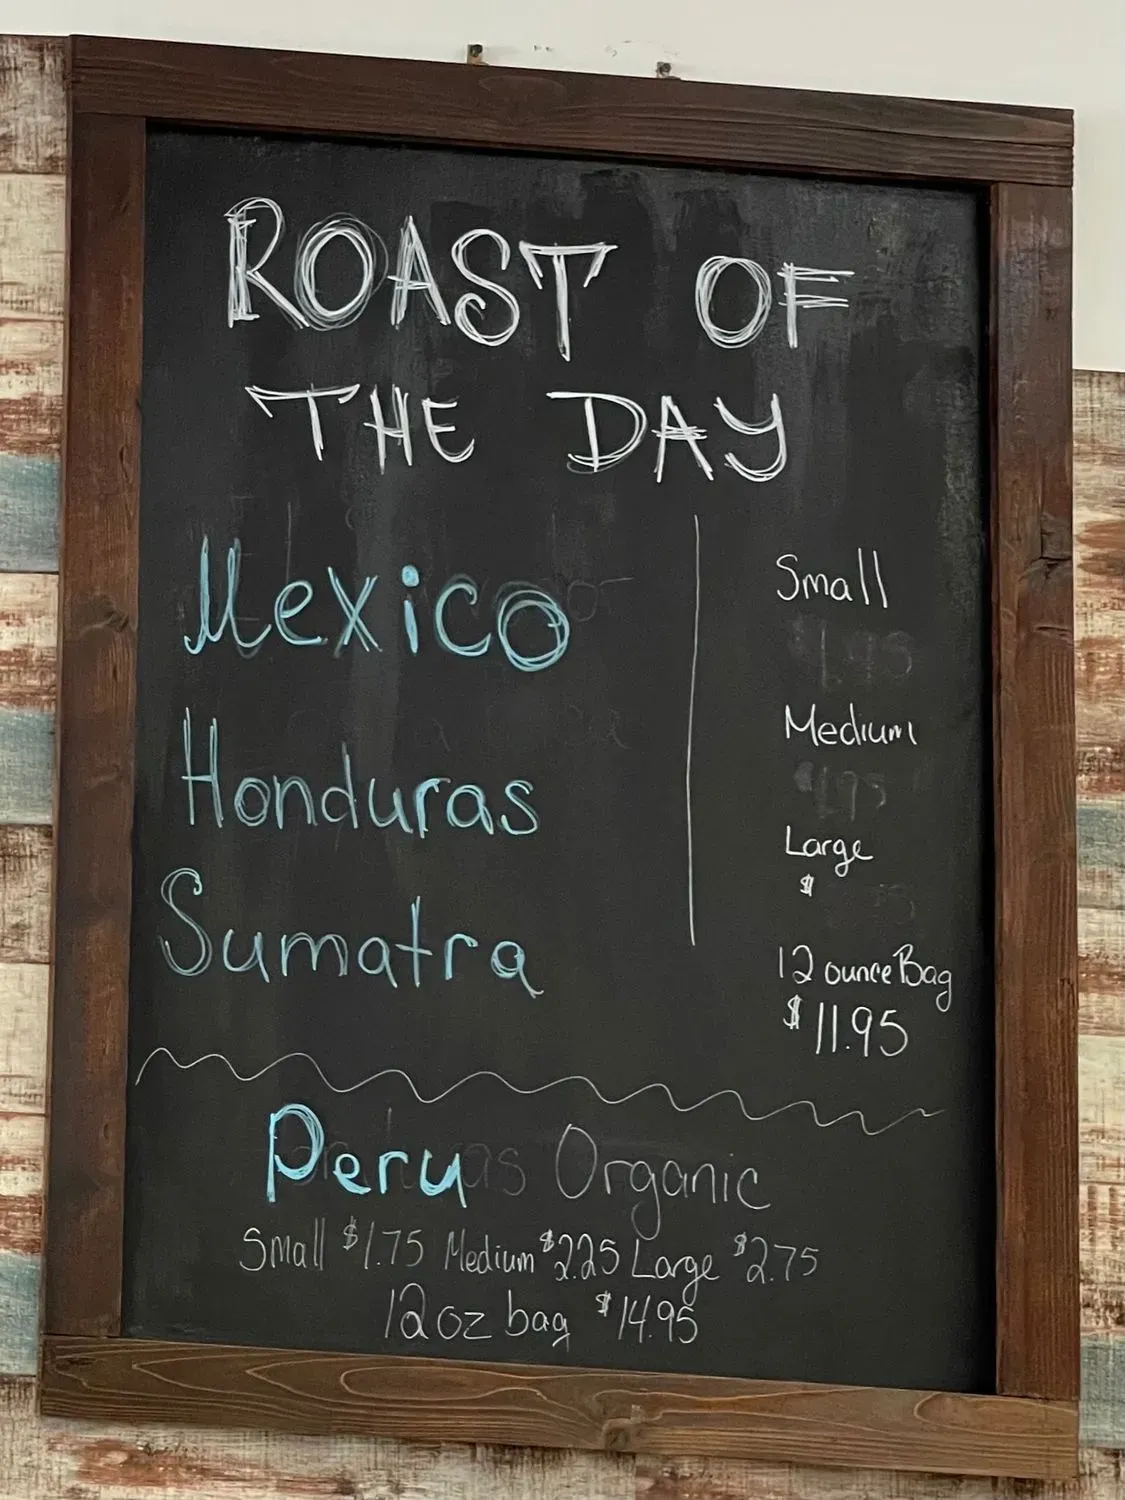 ROAST OF
THE DAY
Mexico
Honduras
Sumatra
Small
Medium
Large
$
12 ounce Bag
$11.95
Peru Organic
Small $1.75 Medium $2.25 Large $2.75
12 oz bag $14.95